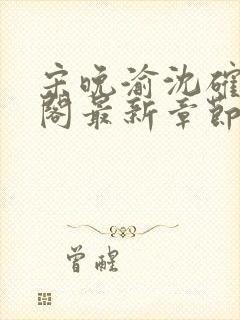 宋晚渝沈確
閣最新章節
曾醒